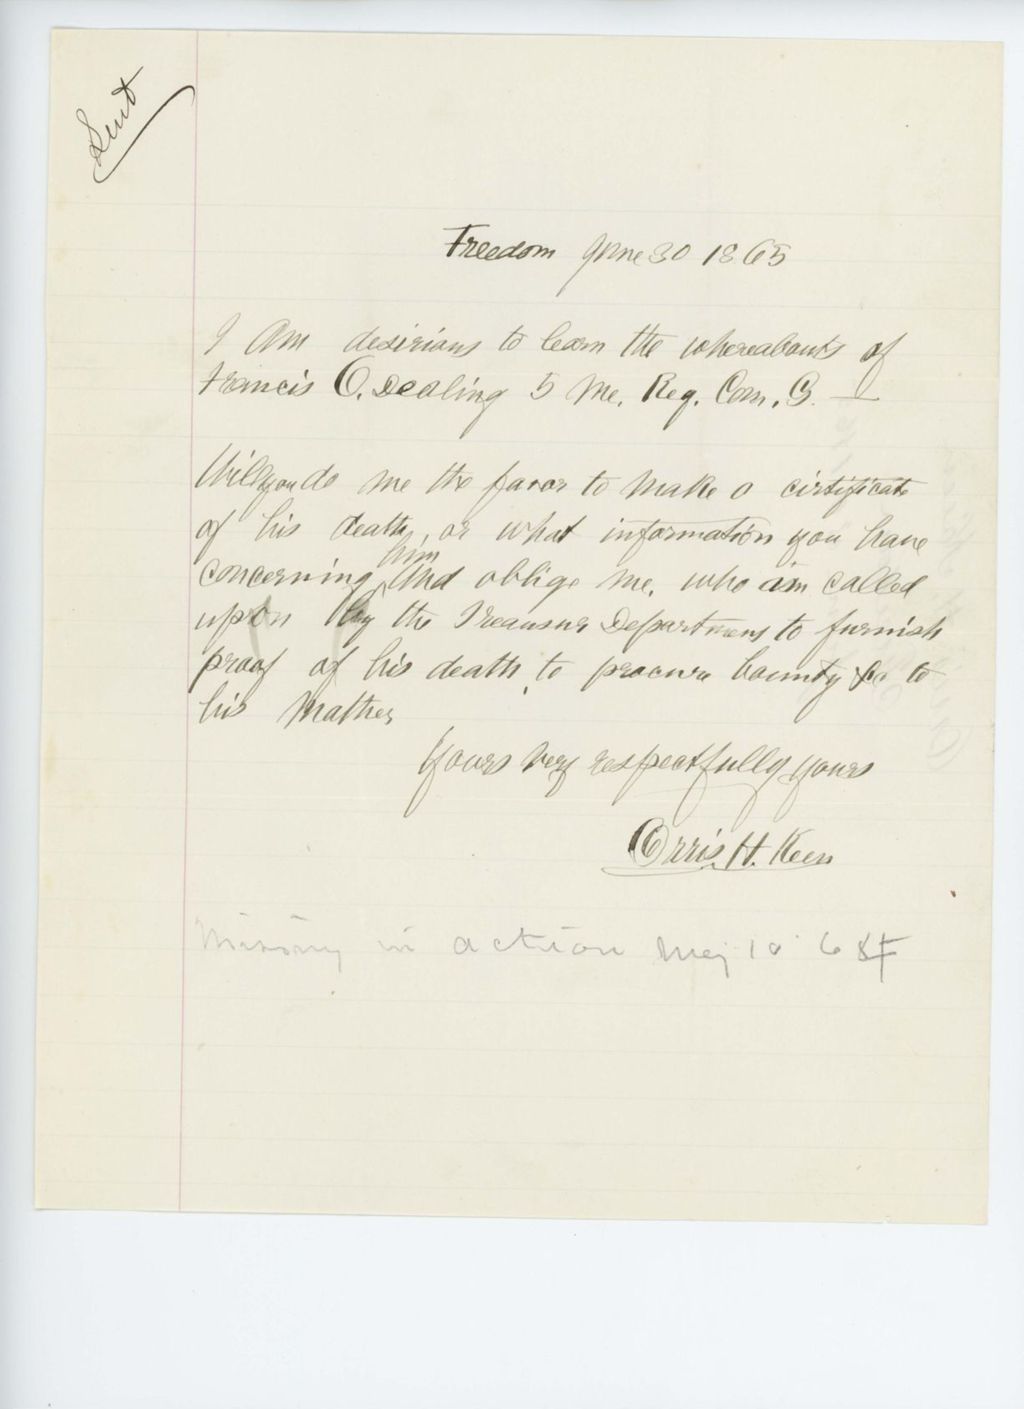 Sent
Freedom June 30 1865
I Am desirious to learn the whereabouts of
Francis O. Dealing 5 Me. Reg. Com. G.
Will you do me the favor to make a certificate
of his death, or what information you have
him
concerning and oblige me, who am called
upon by the Treausur Department to furnish
proof of his death, to procure bounty &c to
his Mather,
Yours very respectfully yours
Orris. H. Keen
Missing in action May 10 64